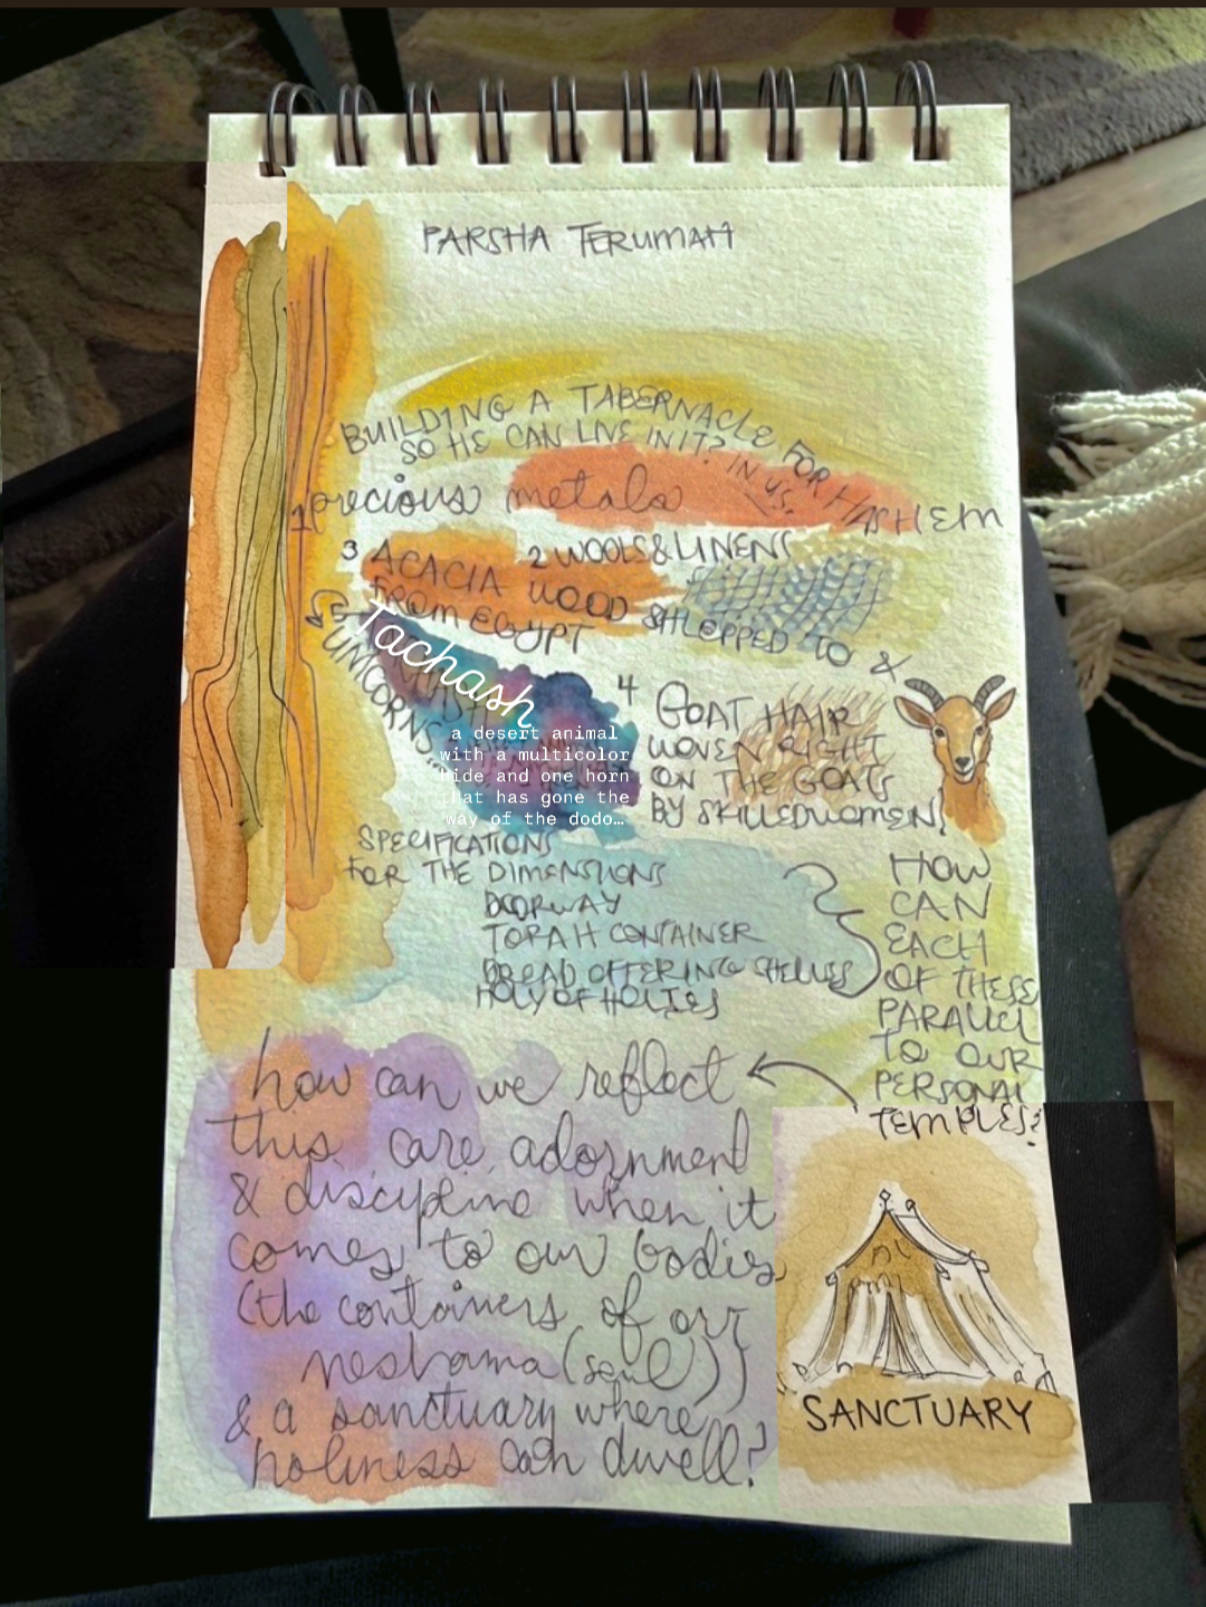 PARSHA TERUMAH
BUILDING A TABERNACLE FOR HASHEM
SO HE CAN LIVE IN IT? IN US.
1 precious metals
2 WOOLS & LINENS
3 ACACIA WOOD
FROM EGYPT SHLEPPED TO &
5
UNICORNS...
Tachash
a desert animal
with a multicolor
hide and one horn
that has gone the
way of the dodo…
4 GOAT HAIR
WOVEN RIGHT
ON THE GOATS
BY SKILLED WOMEN!
SPECIFICATIONS
FOR THE DIMENSIONS
DOORWAY
TORAH CONTAINER
BREAD OFFERING SHELVES
HOLY OF HOLIES
HOW
CAN
EACH
OF THESE
PARALLEL
TO OUR
PERSONAL
TEMPLES?
how can we reflect
this care, adornment
& discipline when it
comes to our bodies
(the containers of our
neshama (soul))
& a sanctuary where
holiness can dwell?
SANCTUARY